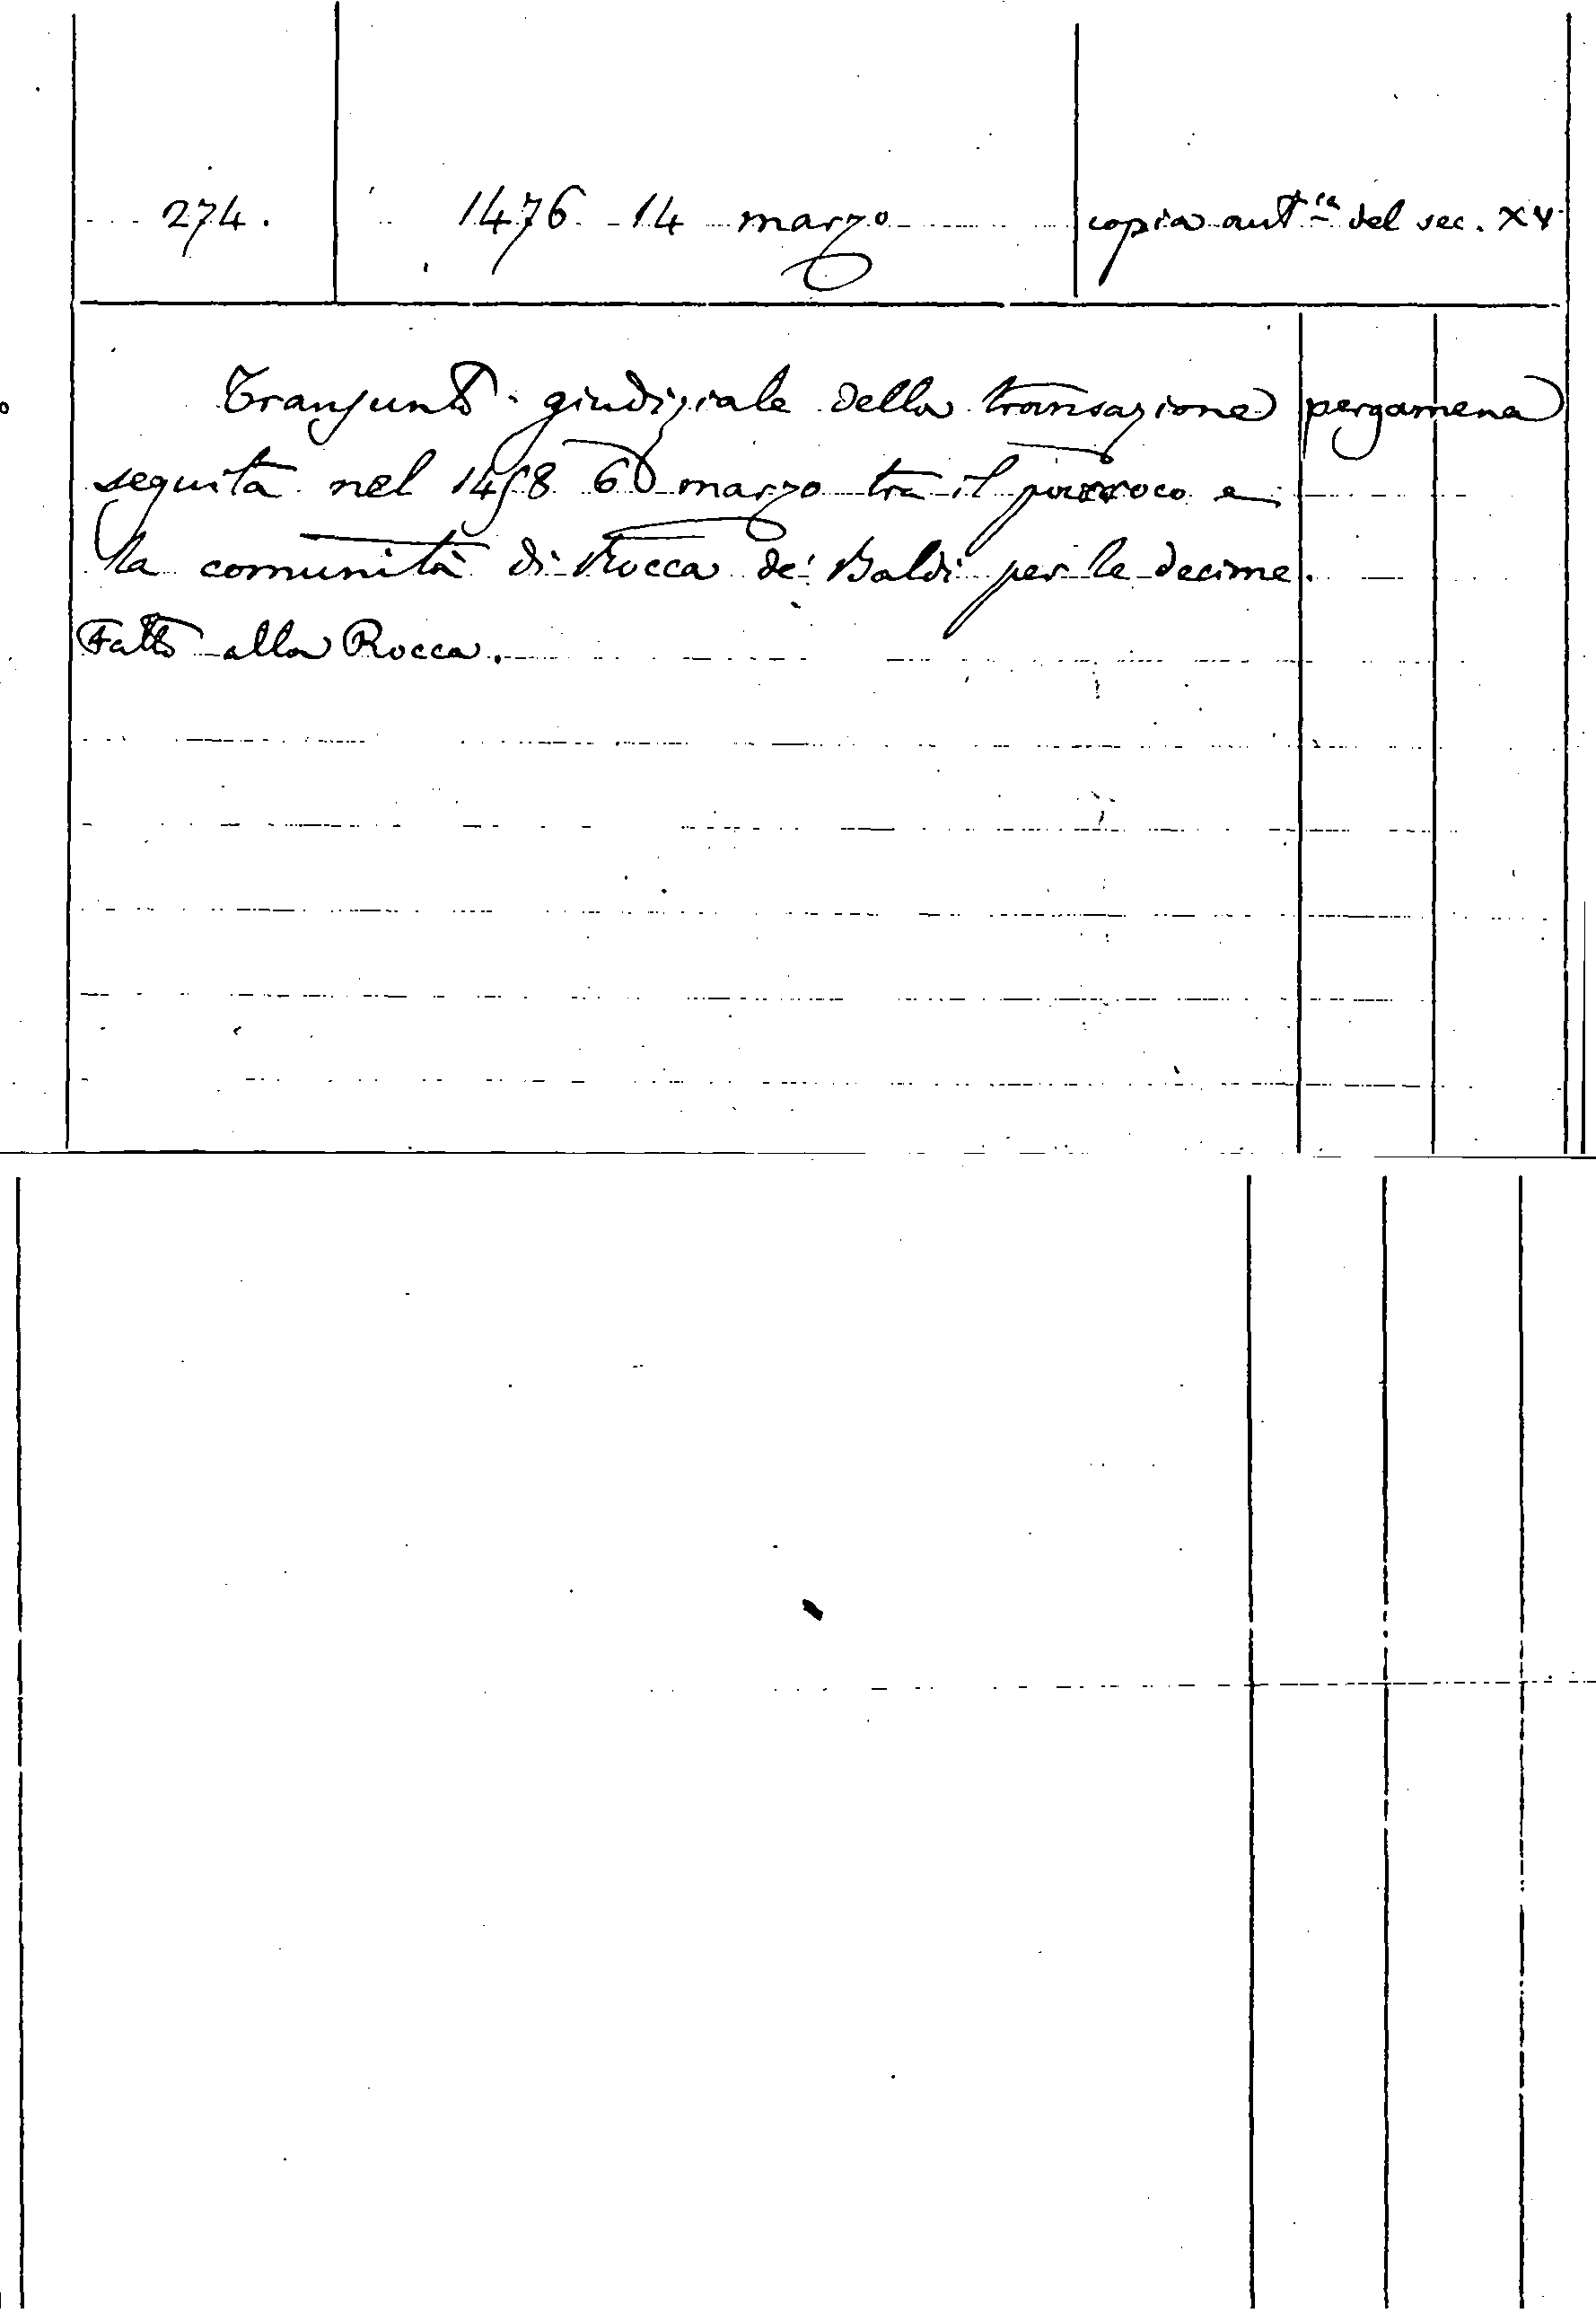 274. 1476 14 marzo copia aut.ca del sec. XV
Transunto giudiziale della transazione pergamena
seguita nel 1458 6 marzo tra il parroco e
la comunità di Rocca de' Baldi per le decime.
Fatto alla Rocca.